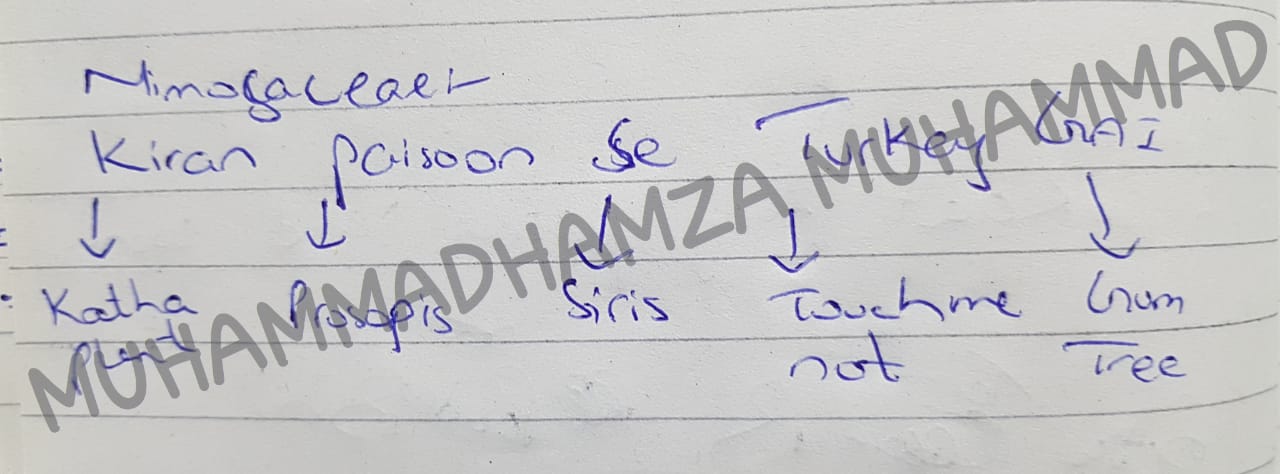 Mimosaceae:-
Kiran paisoon se Turkey GAI
↓ ↓ ↓ ↓ ↓
Katha Prosopis Siris Touch me Gum
plant not Tree
MUHAMMADHAMZA MUHAMMAD